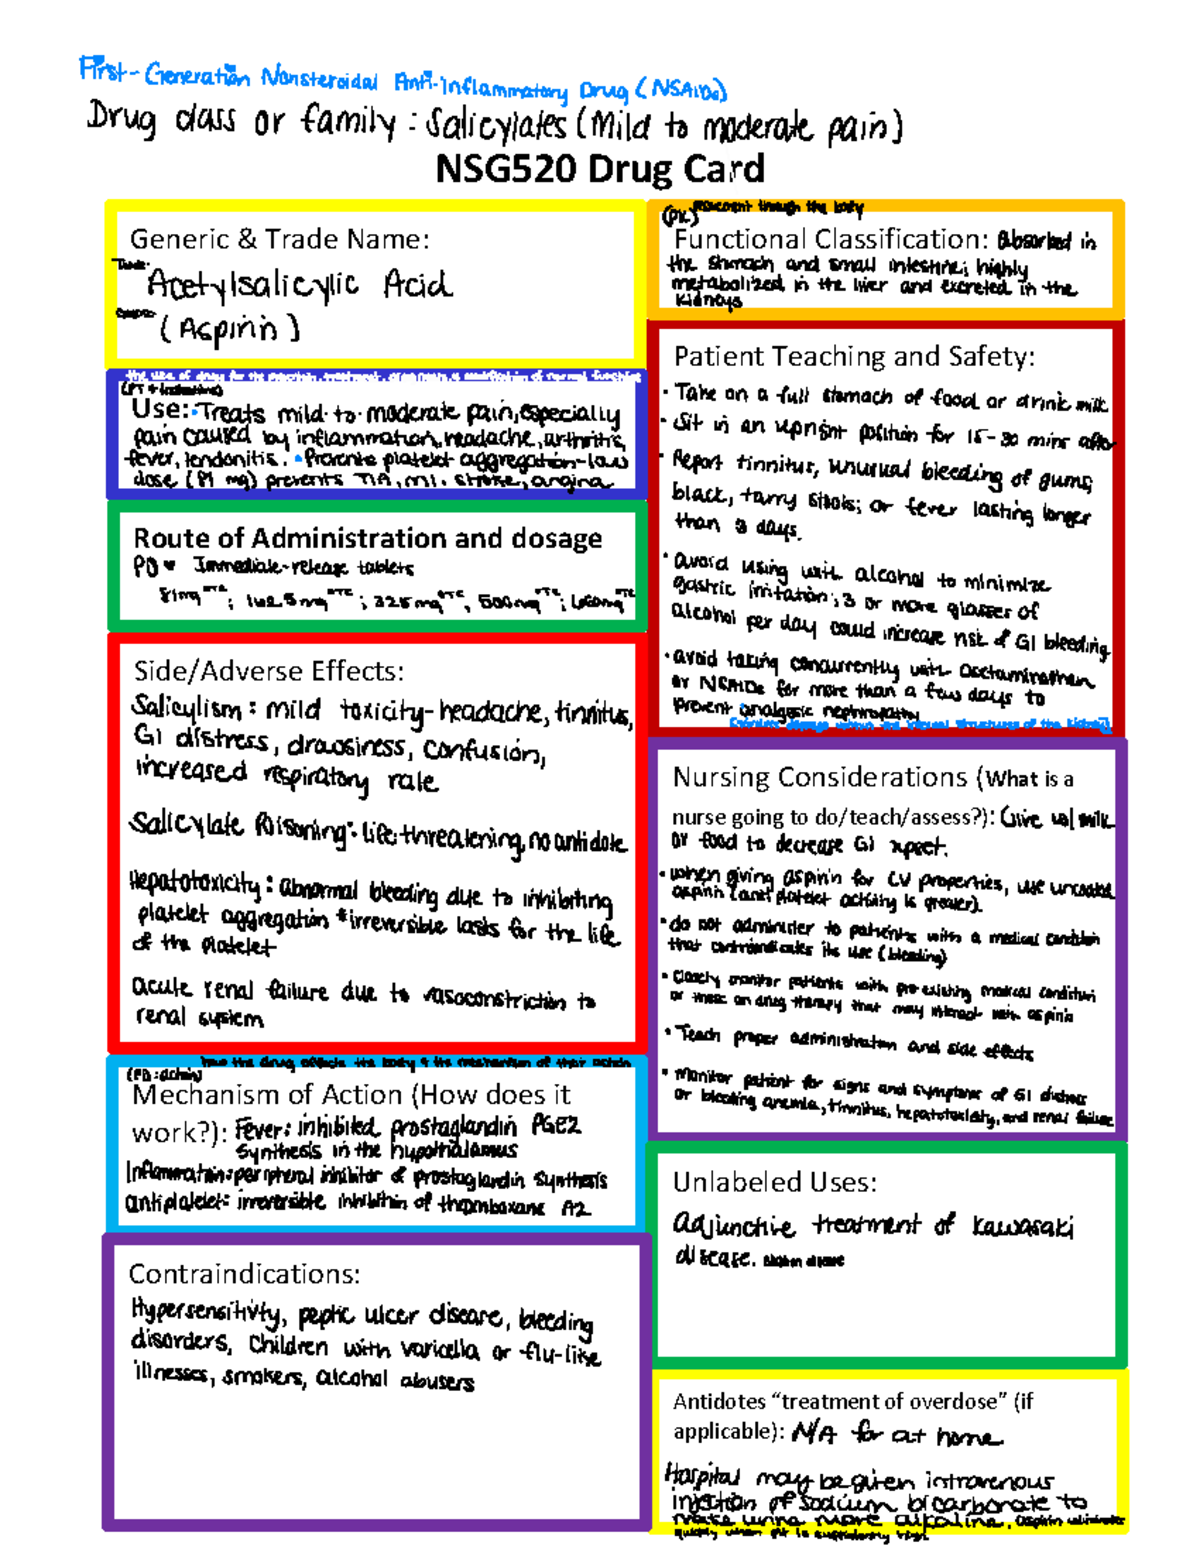 First-Generation Nonsteroidal Anti-Inflammatory Drug (NSAIDs)
Drug class or family: Salicylates (Mild to moderate pain)
NSG520 Drug Card
Generic & Trade Name:
Acetylsalicylic Acid
(Aspirin)
the use of drugs for the
Use: Treats mild to moderate pain, especially
pain caused by inflammation, headache, arthritis,
fever, tendonitis. Prevents platelet aggregation-low
dose (81 mg) prevents TIA, MI, stroke, angina
Route of Administration and dosage
PO Immediate-release tablets
81mg OTC; 162.5mg OTC; 325mg OTC, 500mg OTC;
Side/Adverse Effects:
Salicylism: mild toxicity-headache, tinnitus,
GI distress, drowsiness, confusion,
increased respiratory rate
Salicylate Poisoning: life-threatening, no antidote
Hepatotoxicity: abnormal bleeding due to inhibiting
platelet aggregation *irreversible lasts for the life
of the platelet
acute renal failure due to vasoconstriction to
renal system
how the drug affects the body & the mechanism of their action
(PD: action)
Mechanism of Action (How does it
work?): Fever: inhibited prostaglandin PGE2
synthesis in the hypothalamus
Inflammation: peripheral inhibitor of prostaglandin synthesis
antiplatelet: irreversible inhibition of thromboxane A2
Contraindications:
Hypersensitivity, peptic ulcer disease, bleeding
disorders, Children with varicella or flu-like
illnesses, smokers, alcohol abusers
(PK) movement through the body
Functional Classification: Absorbed in
the stomach and small intestine; highly
metabolized in the liver and excreted in the
kidneys
Patient Teaching and Safety:
· Take on a full stomach of food or drink milk
· Sit in an upright position for 15-30 mins after
· Report tinnitus, unusual bleeding of gums,
black, tarry stools; or fever lasting longer
than 3 days.
· avoid using with alcohol to minimize
gastric irritation; 3 or more glasses of
alcohol per day could increase risk of GI bleeding
· avoid taking concurrently with acetaminophen
or NSAIDs for more than a few days to
prevent analgesic nephropathy
damage within the internal structures of the kidney
Nursing Considerations (What is a
nurse going to do/teach/assess?): Give w/ milk
or food to decrease GI
· when giving aspirin for CV properties, use uncoated
aspirin (antiplatelet activity is greater).
· do not administer to patients with a medical condition
that contraindicates its use (bleeding)
· Closely monitor patients with pre-existing medical condition
or those on drug therapy that may interact with aspirin
· Teach proper administration and side effects
· monitor patient for signs and symptoms of GI distress
or bleeding anemia, tinnitus, hepatotoxicity, and renal failure
Unlabeled Uses:
adjunctive treatment of kawasaki
disease.
Antidotes “treatment of overdose” (if
applicable): N/A for at home
Hospital may be given intravenous
injection of sodium bicarbonate to
make urine more alkaline. aspirin eliminates
quickly when pH is sufficiently high.